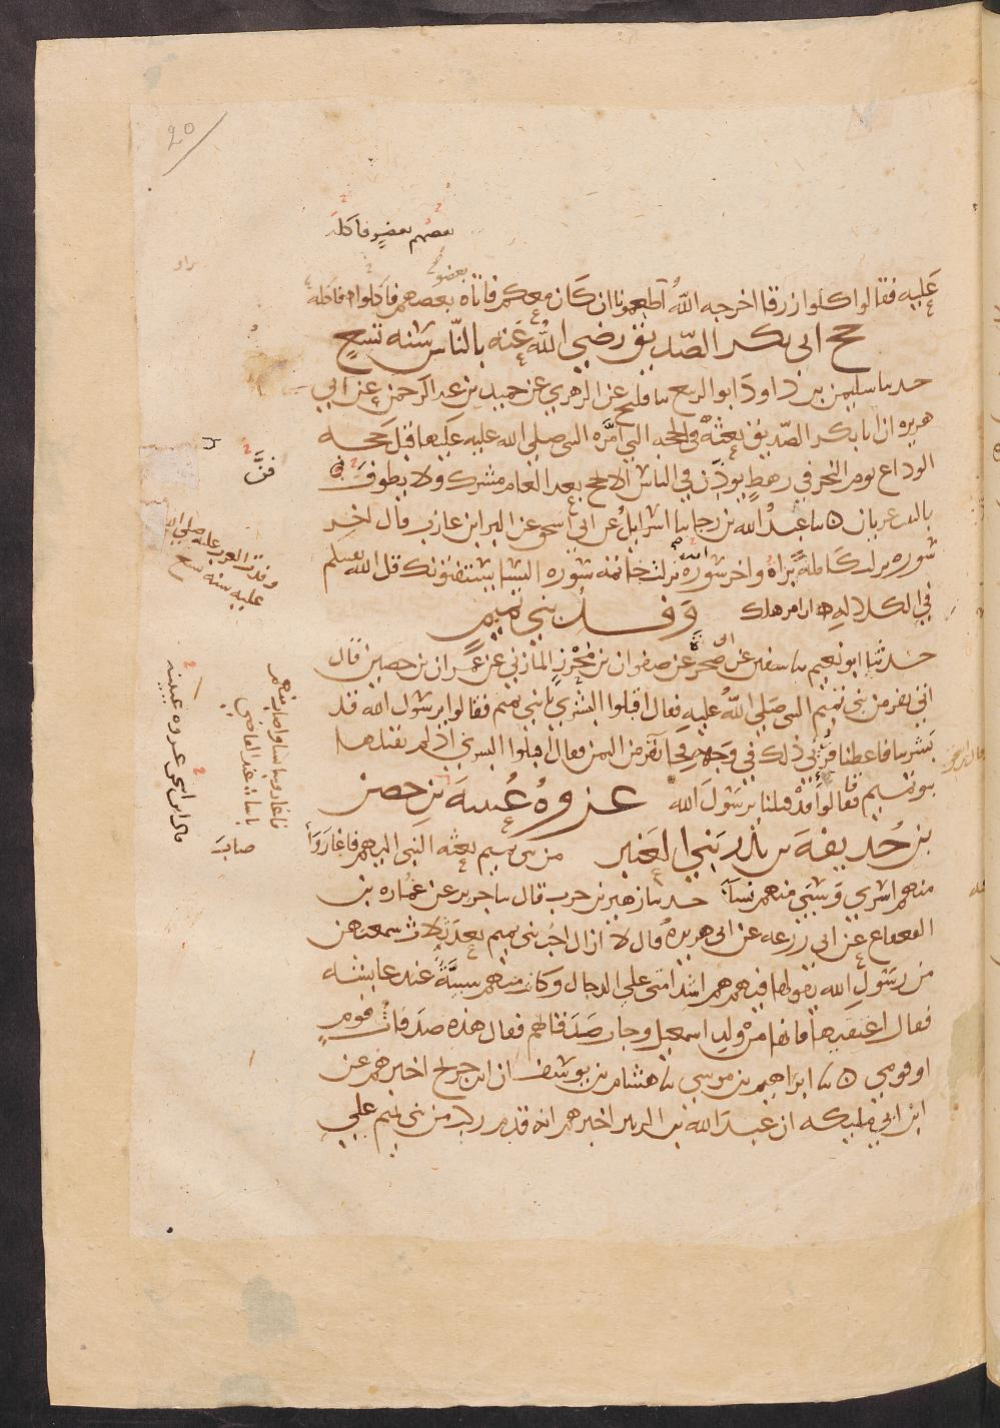 20
بعضهم بعضو فاكله
عليه فقالوا كلوا رزقا اخرجه الله اطعمونا ان كان معكم فاتاه بعضهم فاكلوا فاكله
حج ابى بكر الصديق رضي الله عنه بالناس سنه تسع
حدثنا سليمن بن داود ابو الربيع نا فليح عن الزهري عن حميد بن عبد الرحمن عن ابي
هريره ان ابا بكر الصديق بعثه في الحجه التي امره النبي صلى الله عليه عليها قبل حجه
الوداع يوم النحر في رهط يؤذن في الناس الا لا يحج بعد العام مشرك ولا يطوف
بالبيت عريان ۵ نا عبد الله بن رجا نا اسرائيل عن ابى اسحق عن البرا بن عازب قال اخر
سوره نزلت كاملة براة واخر سورة نزلت خاتمه سوره النسا يستفتونك قل الله يفتيكم
في الكلاله ۵ ان امرو هلك وفد بني تميم
حدثنا ابو نعيم نا سفين عن ابى صخرة عن صفوان بن محرز المازني عن عمران بن حصين قال
اتى نفر من بني تميم النبى صلى الله عليه فقال اقبلوا البشرى يا بني تميم فقالوا يرسول الله قد
بشرتنا فاعطنا فرئي ذلك في وجهه فجا نفر من اليمن فقال اقبلوا البشرى اذ لم يقبلها
بنو تميم فقالوا قد قبلنا يرسول الله غزوة عيينة بن حصن
بن حذيفة بن بدر بني العنبر من بني تميم بعثه النبي اليهم فاغار واصاب
منهم اسرى وسبى منهم نسآ حدثنا زهير بن حرب قال نا جرير عن عماره بن
القعقاع عن ابى زرعه عن ابى هريرة قال لا ازال احب بنى تميم بعد ثلاث سمعتهن
من رسول الله يقولها فيهم هم اشد امتى على الدجال وكانت منهم سبيّة عند عايشه
فقال اعتقيها فانها من ولد اسمعيل وجات صدقاتهم فقال هذه صدقات قوم
او قومي ۵ نا ابراهيم بن موسى نا هشام بن يوسف ان ابن جريج اخبرهم عن
ابن ابي مليكه ان عبد الله بن الزبير اخبرهم انه قدم ركب من بنى تميم على